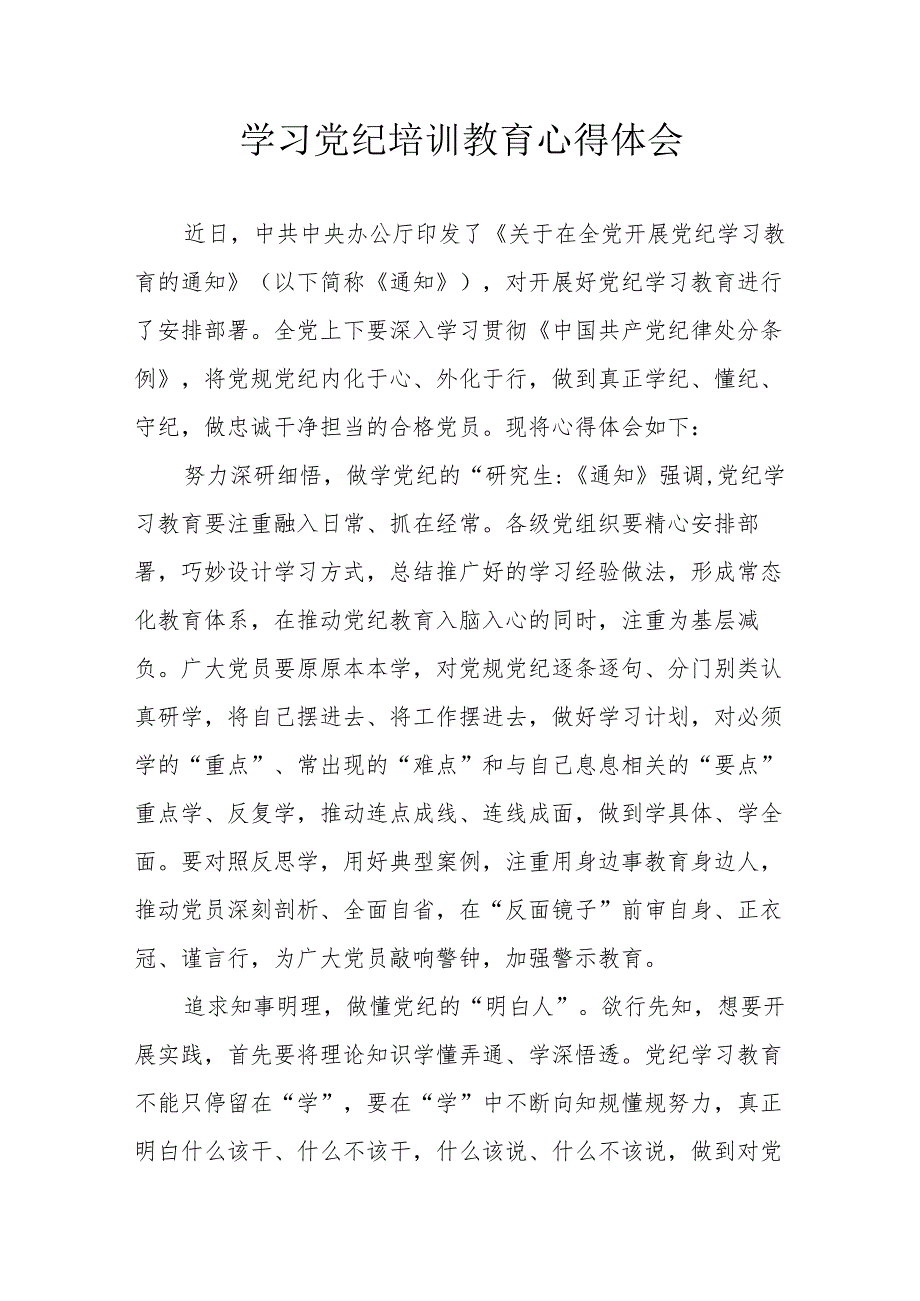 学习党纪培训教育心得体会
近日，中共中央办公厅印发了《关于在全党开展党纪学习教
育的通知》（以下简称《通知》），对开展好党纪学习教育进行
了安排部署。全党上下要深入学习贯彻《中国共产党纪律处分条
例》，将党规党纪内化于心、外化于行，做到真正学纪、懂纪、
守纪，做忠诚干净担当的合格党员。现将心得体会如下：
努力深研细悟，做学党纪的“研究生:《通知》强调,党纪学
习教育要注重融入日常、抓在经常。各级党组织要精心安排部
署，巧妙设计学习方式，总结推广好的学习经验做法，形成常态
化教育体系，在推动党纪教育入脑入心的同时，注重为基层减
负。广大党员要原原本本学，对党规党纪逐条逐句、分门别类认
真研学，将自己摆进去、将工作摆进去，做好学习计划，对必须
学的“重点”、常出现的“难点”和与自己息息相关的“要点”
重点学、反复学，推动连点成线、连线成面，做到学具体、学全
面。要对照反思学，用好典型案例，注重用身边事教育身边人，
推动党员深刻剖析、全面自省，在“反面镜子”前审自身、正衣
冠、谨言行，为广大党员敲响警钟，加强警示教育。
追求知事明理，做懂党纪的“明白人”。欲行先知，想要开
展实践，首先要将理论知识学懂弄通、学深悟透。党纪学习教育
不能只停留在“学”，要在“学”中不断向知规懂规努力，真正
明白什么该干、什么不该干，什么该说、什么不该说，做到对党